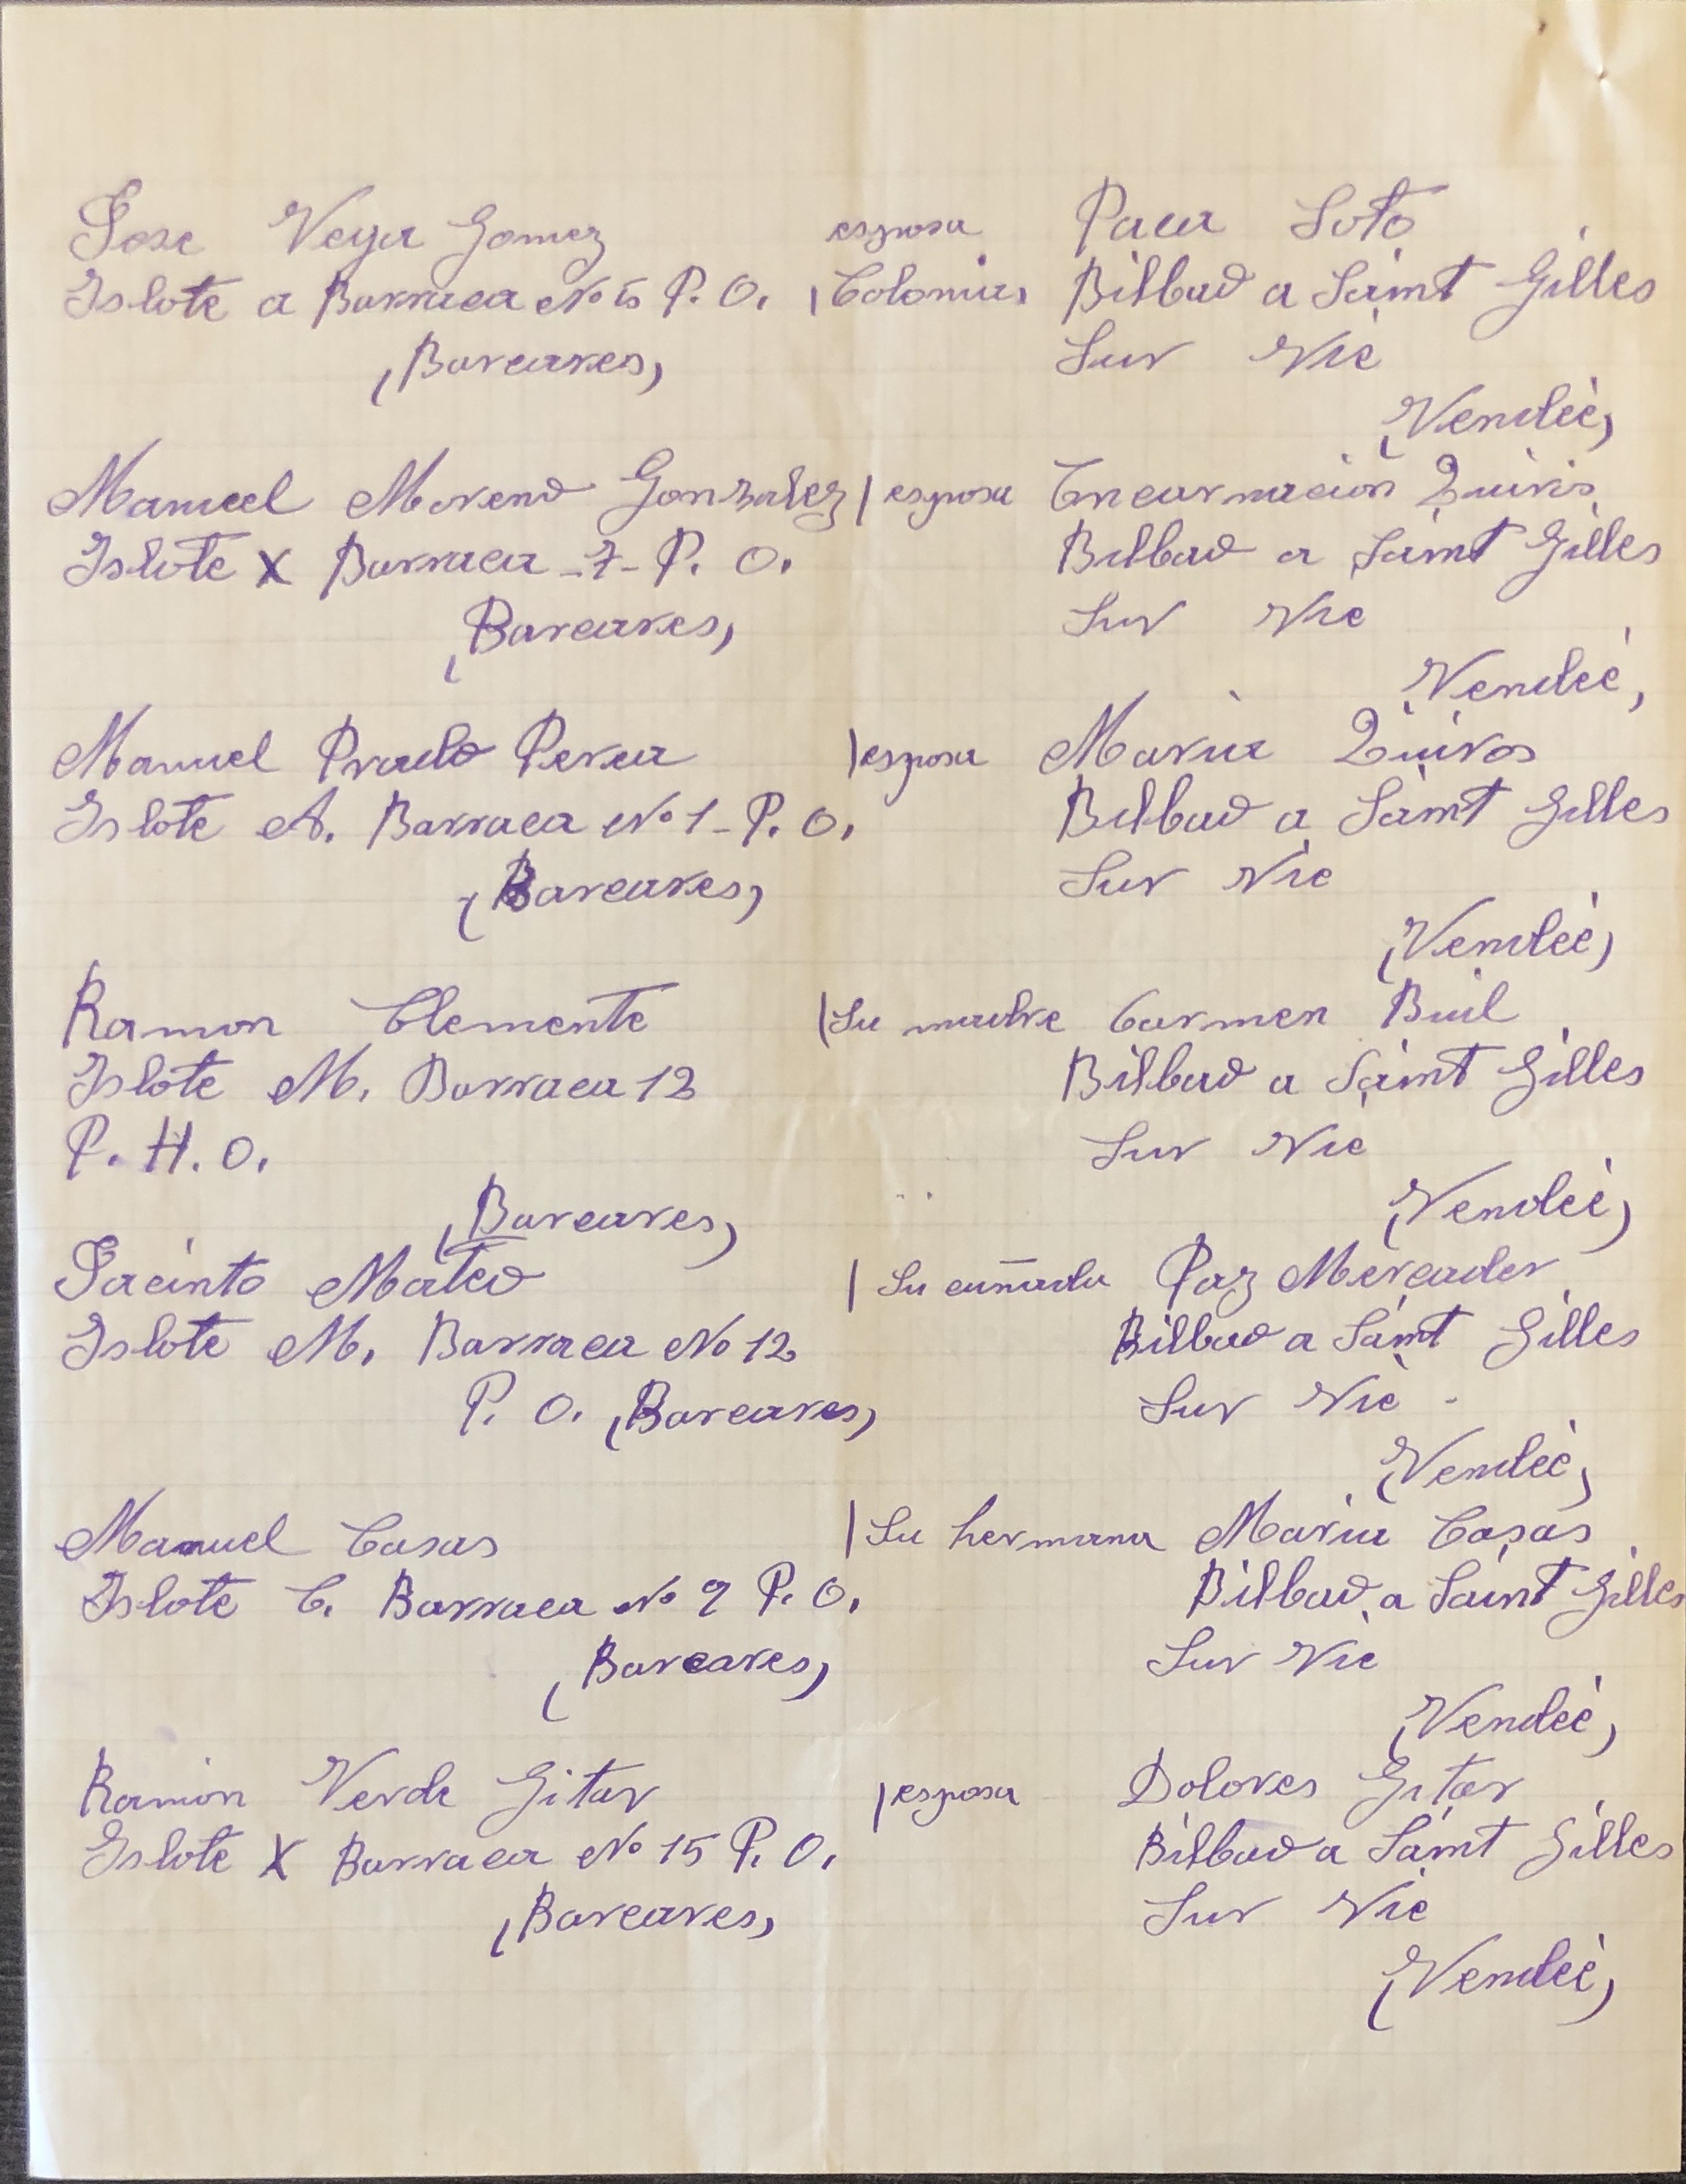 Jose Vega Gomez esposa Paca Soto
Islote a Barraca No 5 P. O. (Colonia) Bilbao a Saint Gilles
(Barcares) Sur Vie
(Vendée)
Manuel Moreno Gonzalez | esposa Encarnación Quirós
Islote X Barraca -7- P. O. Bilbao a Saint Gilles
(Barcares) Sur Vie
(Vendée)
Manuel Prado Perea | esposa Maria Quiros
Islote A. Barraca No 1 - P. O. Bilbao a Saint Gilles
(Barcares) Sur Vie
(Vendée)
Ramon Clemente | Su madre Carmen Buil
Islote M. Barraca 12 Bilbao a Saint Gilles
P. H. O. Sur Vie
(Barcares) (Vendée)
Jacinto Mateo | Su cuñada Paz Mercader
Islote M. Barraca No 12 Bilbao a Saint Gilles
P. O. (Barcares) Sur Vie -
(Vendée)
Manuel Casas | Su hermana Maria Casas
Islote C. Barraca No 9 P. O. Bilbao a Saint Gilles
(Barcares) Sur Vie
(Vendée)
Ramón Verde Gitar | esposa Dolores Gitar
Islote X Barraca No 15 P. O. Bilbao a Saint Gilles
(Barcares) Sur Vie
(Vendée)